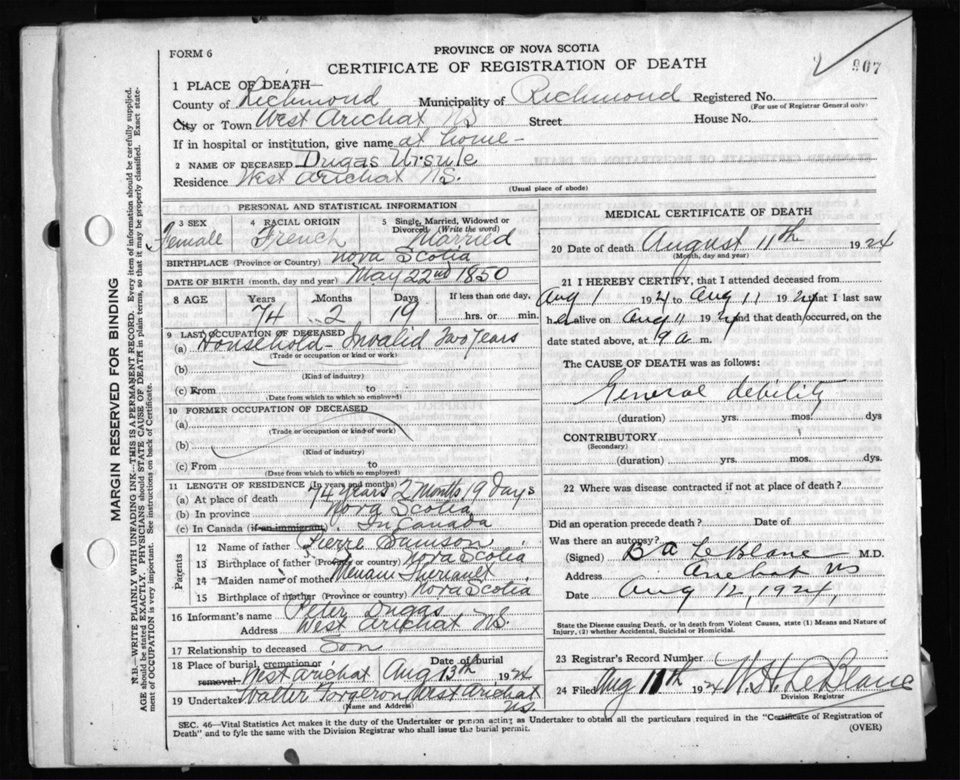 FORM 6
PROVINCE OF NOVA SCOTIA
CERTIFICATE OF REGISTRATION OF DEATH
907
1 PLACE OF DEATH—
County of Richmond Municipality of Richmond Registered No.
(For use of Registrar General only)
City or Town West Arichat NS Street House No.
If in hospital or institution, give name at home -
2 NAME OF DECEASED Dugas Ursule
Residence West Arichat NS.
(Usual place of abode)
PERSONAL AND STATISTICAL INFORMATION
3 SEX 4 RACIAL ORIGIN 5 Single, Married, Widowed or Divorced (Write the word)
Female French Married
BIRTHPLACE (Province or Country) Nova Scotia
DATE OF BIRTH (month, day and year) May 22nd 1850
8 AGE Years Months Days If less than one day,
74 2 19 hrs. or min.
9 LAST OCCUPATION OF DECEASED
(a) Household - Invalid Two Years
(Trade or occupation or kind of work)
(b)
(Kind of industry)
(c) From to
(Date from which to which so employed)
10 FORMER OCCUPATION OF DECEASED
(a)
(Trade or occupation or kind of work)
(b)
(Kind of industry)
(c) From to
(Date from which to which so employed)
11 LENGTH OF RESIDENCE (In years and months)
(a) At place of death 74 years 2 Months 19 days
(b) In province Nova Scotia
(c) In Canada (if an immigrant) In Canada
Parents
12 Name of father Pierre Samson
13 Birthplace of father (Province or country) Nova Scotia
14 Maiden name of mother Theriault
15 Birthplace of mother (Province or country) Nova Scotia
16 Informant's name Peter Dugas
Address West Arichat NS.
17 Relationship to deceased Son
18 Place of burial, cremation or removal West Arichat Date of burial Aug 13th 1924
19 Undertaker Walter Forgeron West Arichat NS.
(Name and Address)
MEDICAL CERTIFICATE OF DEATH
20 Date of death August 11th 1924
(Month, day and year)
21 I HEREBY CERTIFY, that I attended deceased from
Aug 1 1924 to Aug 11 1924 that I last saw
her alive on Aug 11 1924 and that death occurred, on the
date stated above, at 9 a m.
The CAUSE OF DEATH was as follows:
General debility
(duration) yrs. mos. dys
CONTRIBUTORY
(Secondary)
(duration) yrs. mos. ds.
22 Where was disease contracted if not at place of death?
Did an operation precede death? Date of
Was there an autopsy?
(Signed) B A LeBlanc M.D.
Address Arichat NS
Date Aug 12, 1924,
State the Disease causing Death, or in death from Violent Causes, state (1) Means and Nature of Injury, (2) whether Accidental, Suicidal or Homicidal.
23 Registrar's Record Number
24 Filed Aug 11th 1924 W. H. LeBlanc
Division Registrar
SEC. 46—Vital Statistics Act makes it the duty of the Undertaker or person acting as Undertaker to obtain all the particulars required in the "Certificate of Registration of
Death" and to fyle the same with the Division Registrar who shall issue the burial permit.
(OVER)
MARGIN RESERVED FOR BINDING
N.B.—WRITE PLAINLY WITH UNFADING INK—THIS IS A PERMANENT RECORD. Every item of information should be carefully supplied.
AGE should be stated EXACTLY. PHYSICIANS should STATE CAUSE OF DEATH in plain terms, so that it may be properly classified. Exact state-
ment of OCCUPATION is very important. See instructions on back of Certificate.